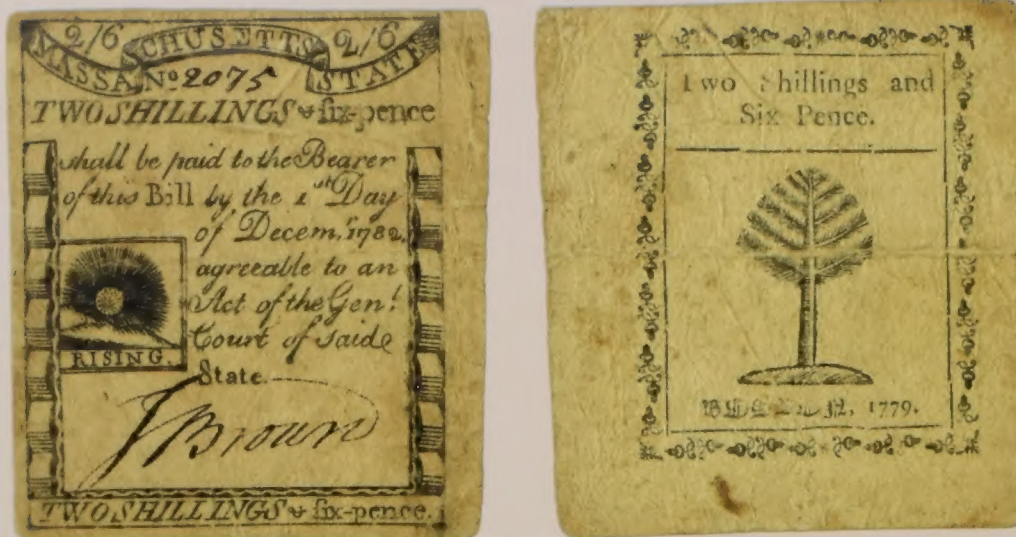 2/6 MASSACHUSETTS STATE 2/6
No 2075
TWO SHILLINGS & six-pence
shall be paid to the Bearer
of this Bill by the 1st Day
of Decem.r 1782.
agreeable to an
Act of the Gen!
Court of saide
State.
RISING.
J Brown
TWO SHILLINGS & six-pence.
Two Shillings and
Six Pence.
1779.